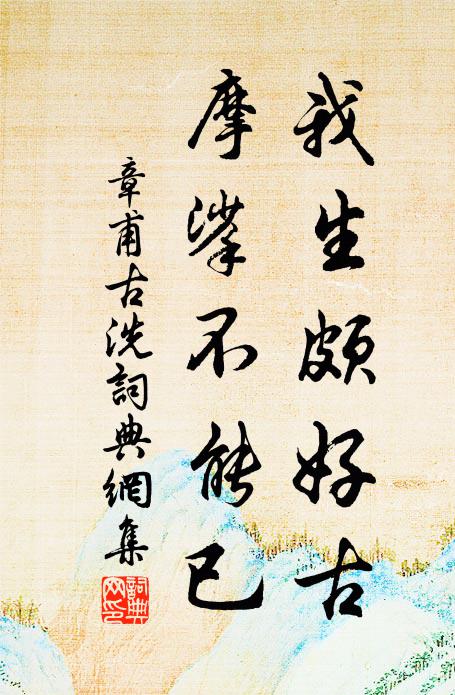 我生頗好古
摩挲不能已
章甫古洗詞典網集
詞典網印